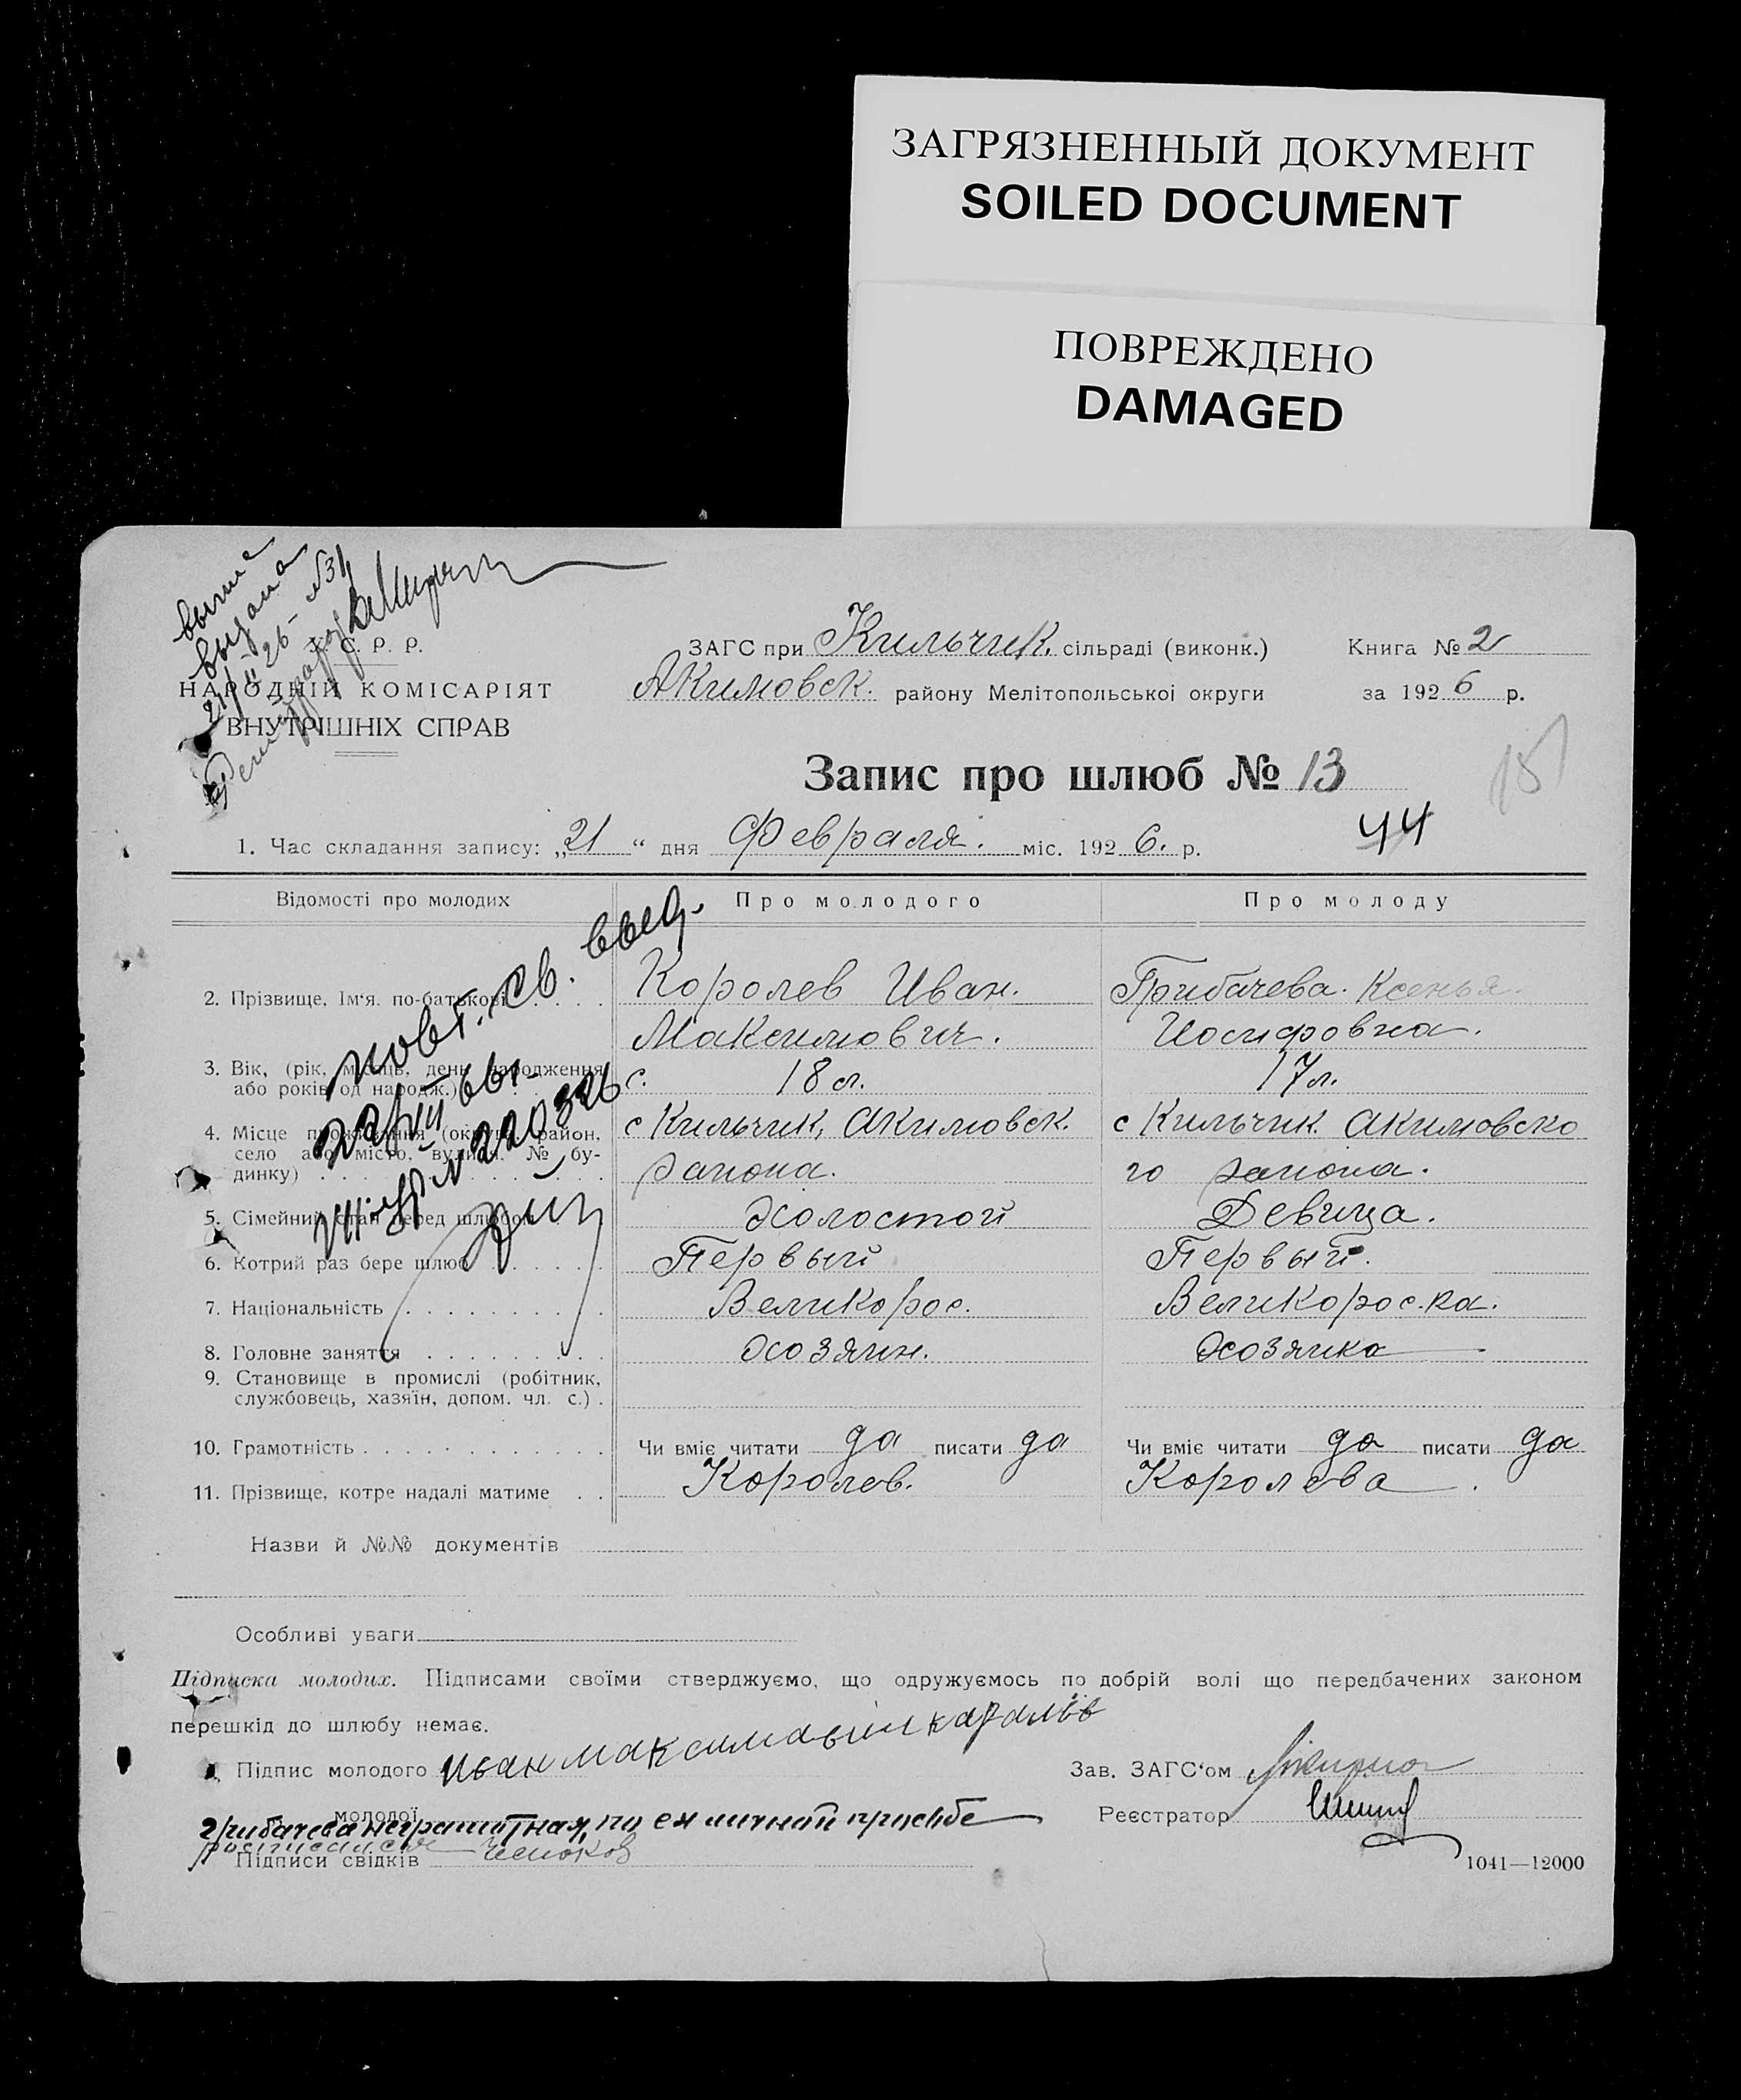 ЗАГРЯЗНЕННЫЙ ДОКУМЕНТ
SOILED DOCUMENT
ПОВРЕЖДЕНО
DAMAGED
выдана
21/II 26 - №31
С. Р. Р.
НАРОДНІЙ КОМІСАРІЯТ
ВНУТРІШНІХ СПРАВ
ЗАГС при Кильчик. сільраді (виконк.) Книга № 2
Акимовск. району Мелітопольської округи за 1926 р.
Запис про шлюб № 13
15
44
1. Час складання запису: „21“ дня Февраля. міс. 1926. р.
Відомості про молодих Про молодого Про молоду
повт. св. выд.
2. Прізвище, Ім‘я. по-батькові Королев Иван. Грибачева. Ксенья.
Максимович. Иосифовна.
3. Вік, (рік, місяць, день народження або років од народж.) 18 л. 17 л.
4. Місце проживання (округа, район, село або місто, вулиця, № будинку) с Кильчик, Акимовск. с Кильчик. Акимовско
района. го района.
5. Сімейний стан перед шлюбом Холостой Девица.
6. Котрий раз бере шлюб Первый Первый.
7. Національність Великорос. Великорос.ка.
8. Головне заняття Хозяин. Хозяйка
9. Становище в промислі (робітник, службовець, хазяїн, допом. чл. с.)
10. Грамотність Чи вміє читати да писати да Чи вміє читати да писати да
11. Прізвище, котре надалі матиме Королев. Королева.
Назви й №№ документів
Особливі уваги
Підписка молодих. Підписами своїми стверджуємо, що одружуємось по добрій волі що передбачених законом
перешкід до шлюбу немає.
Підпис молодого Иван Максимавич Каралёв Зав. ЗАГС‘ом
молодої Грибачева неграмотная, по ея личной просьбе Реєстратор
росписался
Підписи свідків
1041—12000